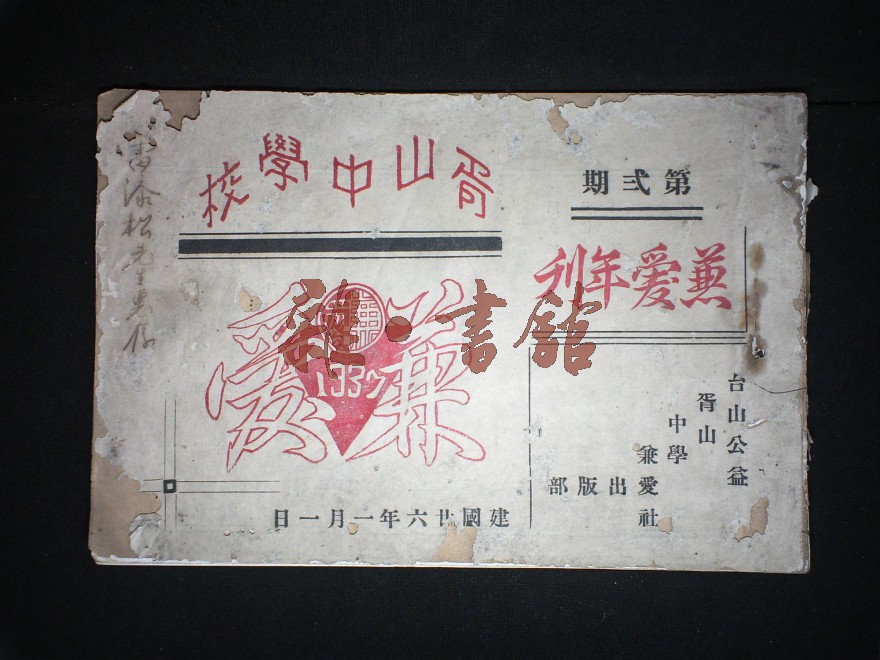 第弍期
蒹爱年刊
台山公益
胥山
中學
兼愛社
出版部
胥山中學校
兼愛
1937
建國廿六年一月一日
雜·書館
松先生惠存